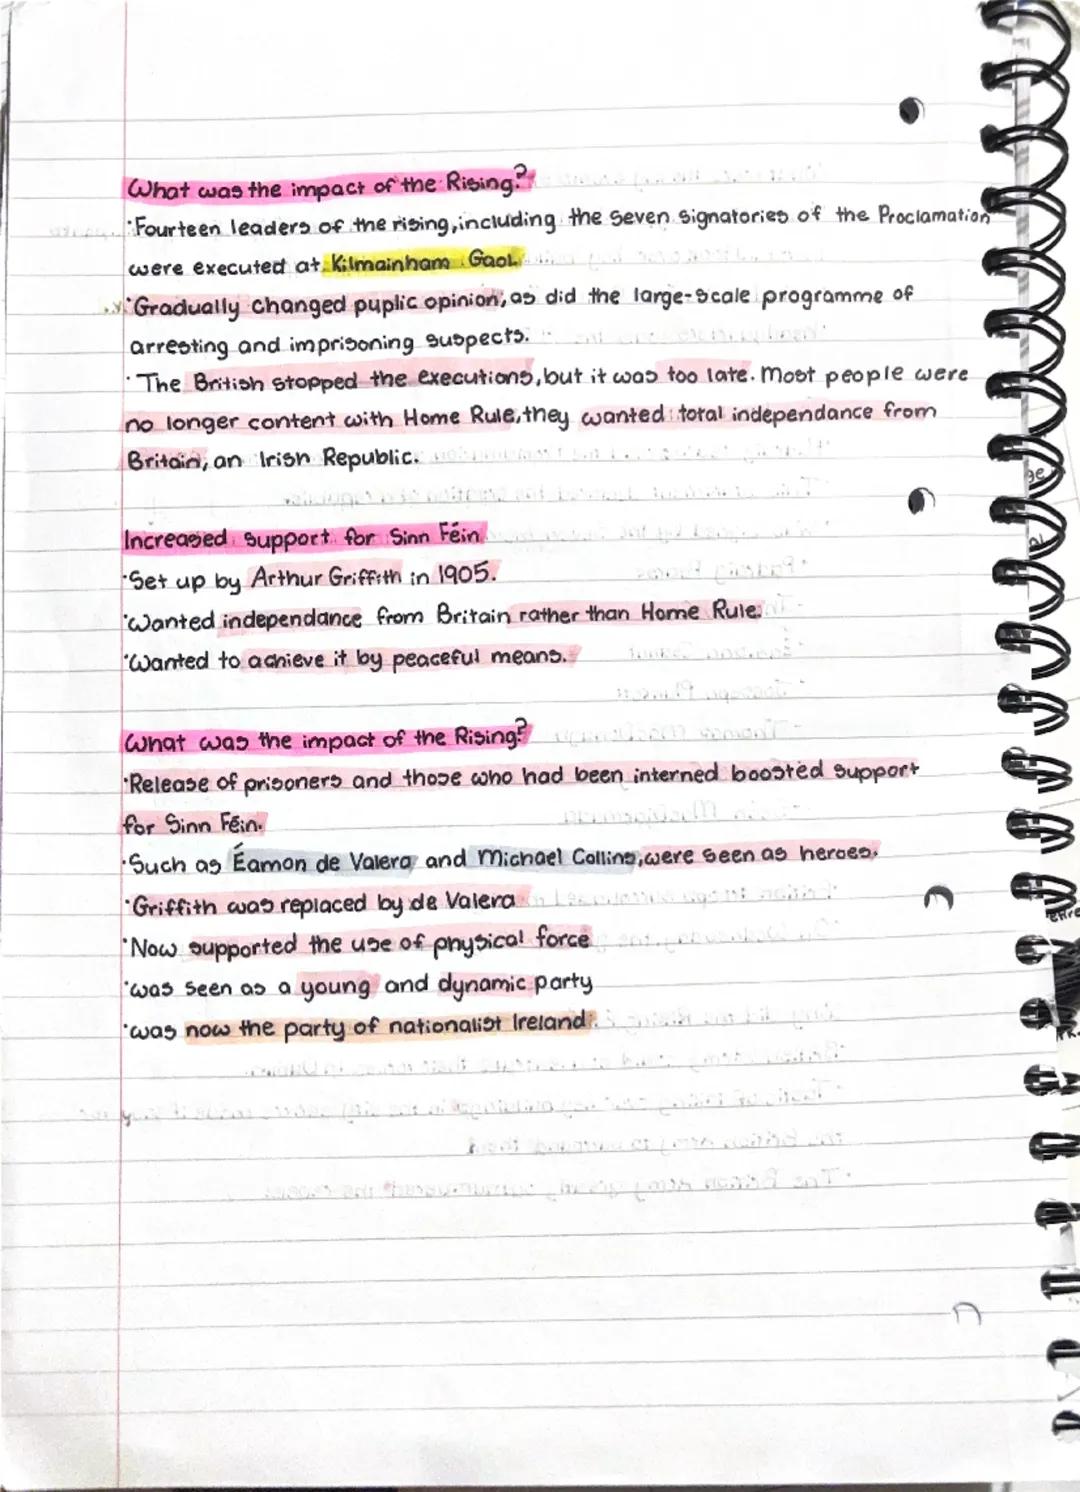 What was the impact of the Rising?
·Fourteen leaders of the rising, including the seven signatories of the Proclamation
were executed at Kilmainham Gaol.
·Gradually changed puplic opinion, as did the large-scale programme of
arresting and imprisoning suspects.
·The British stopped the executions, but it was too late. Most people were
no longer content with Home Rule, they wanted total independance from
Britain, an Irish Republic.
Increased support for Sinn Féin
·Set up by Arthur Griffith in 1905.
·Wanted independance from Britain rather than Home Rule.
·Wanted to achieve it by peaceful means.
What was the impact of the Rising?
·Release of prisoners and those who had been interned boosted support
for Sinn Féin.
·Such as Éamon de Valera and Michael Collins, were seen as heroes.
·Griffith was replaced by de Valera
·Now supported the use of physical force
·was seen as a young and dynamic party
·was now the party of nationalist Ireland.